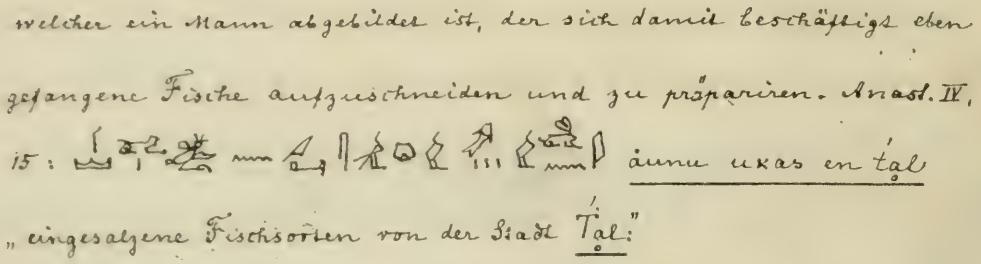 welcher ein Mann abgebildet ist, der sich damit beschäftigt eben
gefangene Fische aufzuschneiden und zu präpariren. Anast. IV,
15: áunu uкas en t́al
„eingesalzene Fischsorten von der Stadt T́al:”